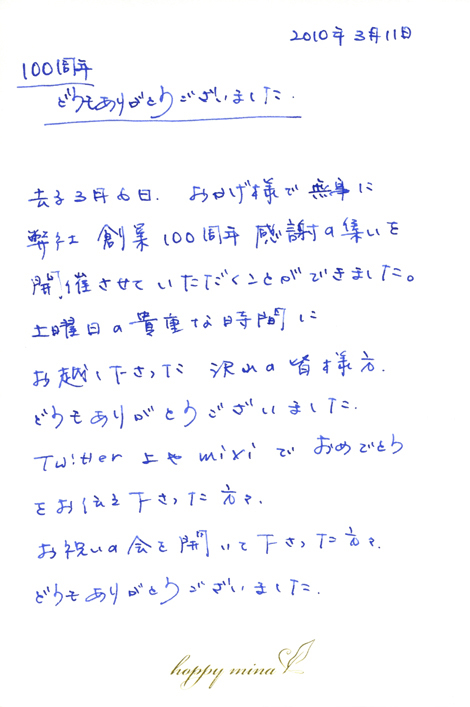 2010年3月11日
100周年
どうもありがとうございました.
去る3月6日. おかげ様で無事に
弊社 創業100周年 感謝の集いを
開催させていただくことができました。
土曜日の貴重な時間に
お越し下さった 沢山の皆様方.
どうもありがとうございました.
Twitter 上や mixi で おめでとう
をお伝え下さった方々.
お祝いの会を開いて下さった方々.
どうもありがとうございました.
happy mina